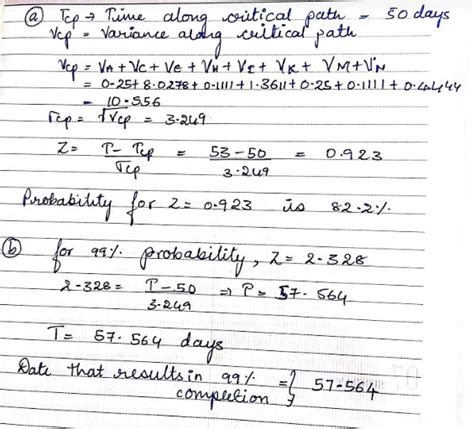 ⓐ Tcp → Time along critical path = 50 days
Vcp = Variance along critical path
Vcp = VA + VC + VE + VH + VI + VK + VM + VN
= 0.25 + 8.0278 + 0.1111 + 1.3611 + 0.25 + 0.1111 + 0.4444
= 10.556
σcp = √Vcp = 3.249
Z = T - Tcp / σcp = 53 - 50 / 3.249 = 0.923
Probability for Z = 0.923 is 82.2%.
ⓑ for 99% probability, Z = 2.328
2.328 = T - 50 / 3.249 ⇒ P = 57.564
T = 57.564 days
Date that results in 99% completion = } 57.564